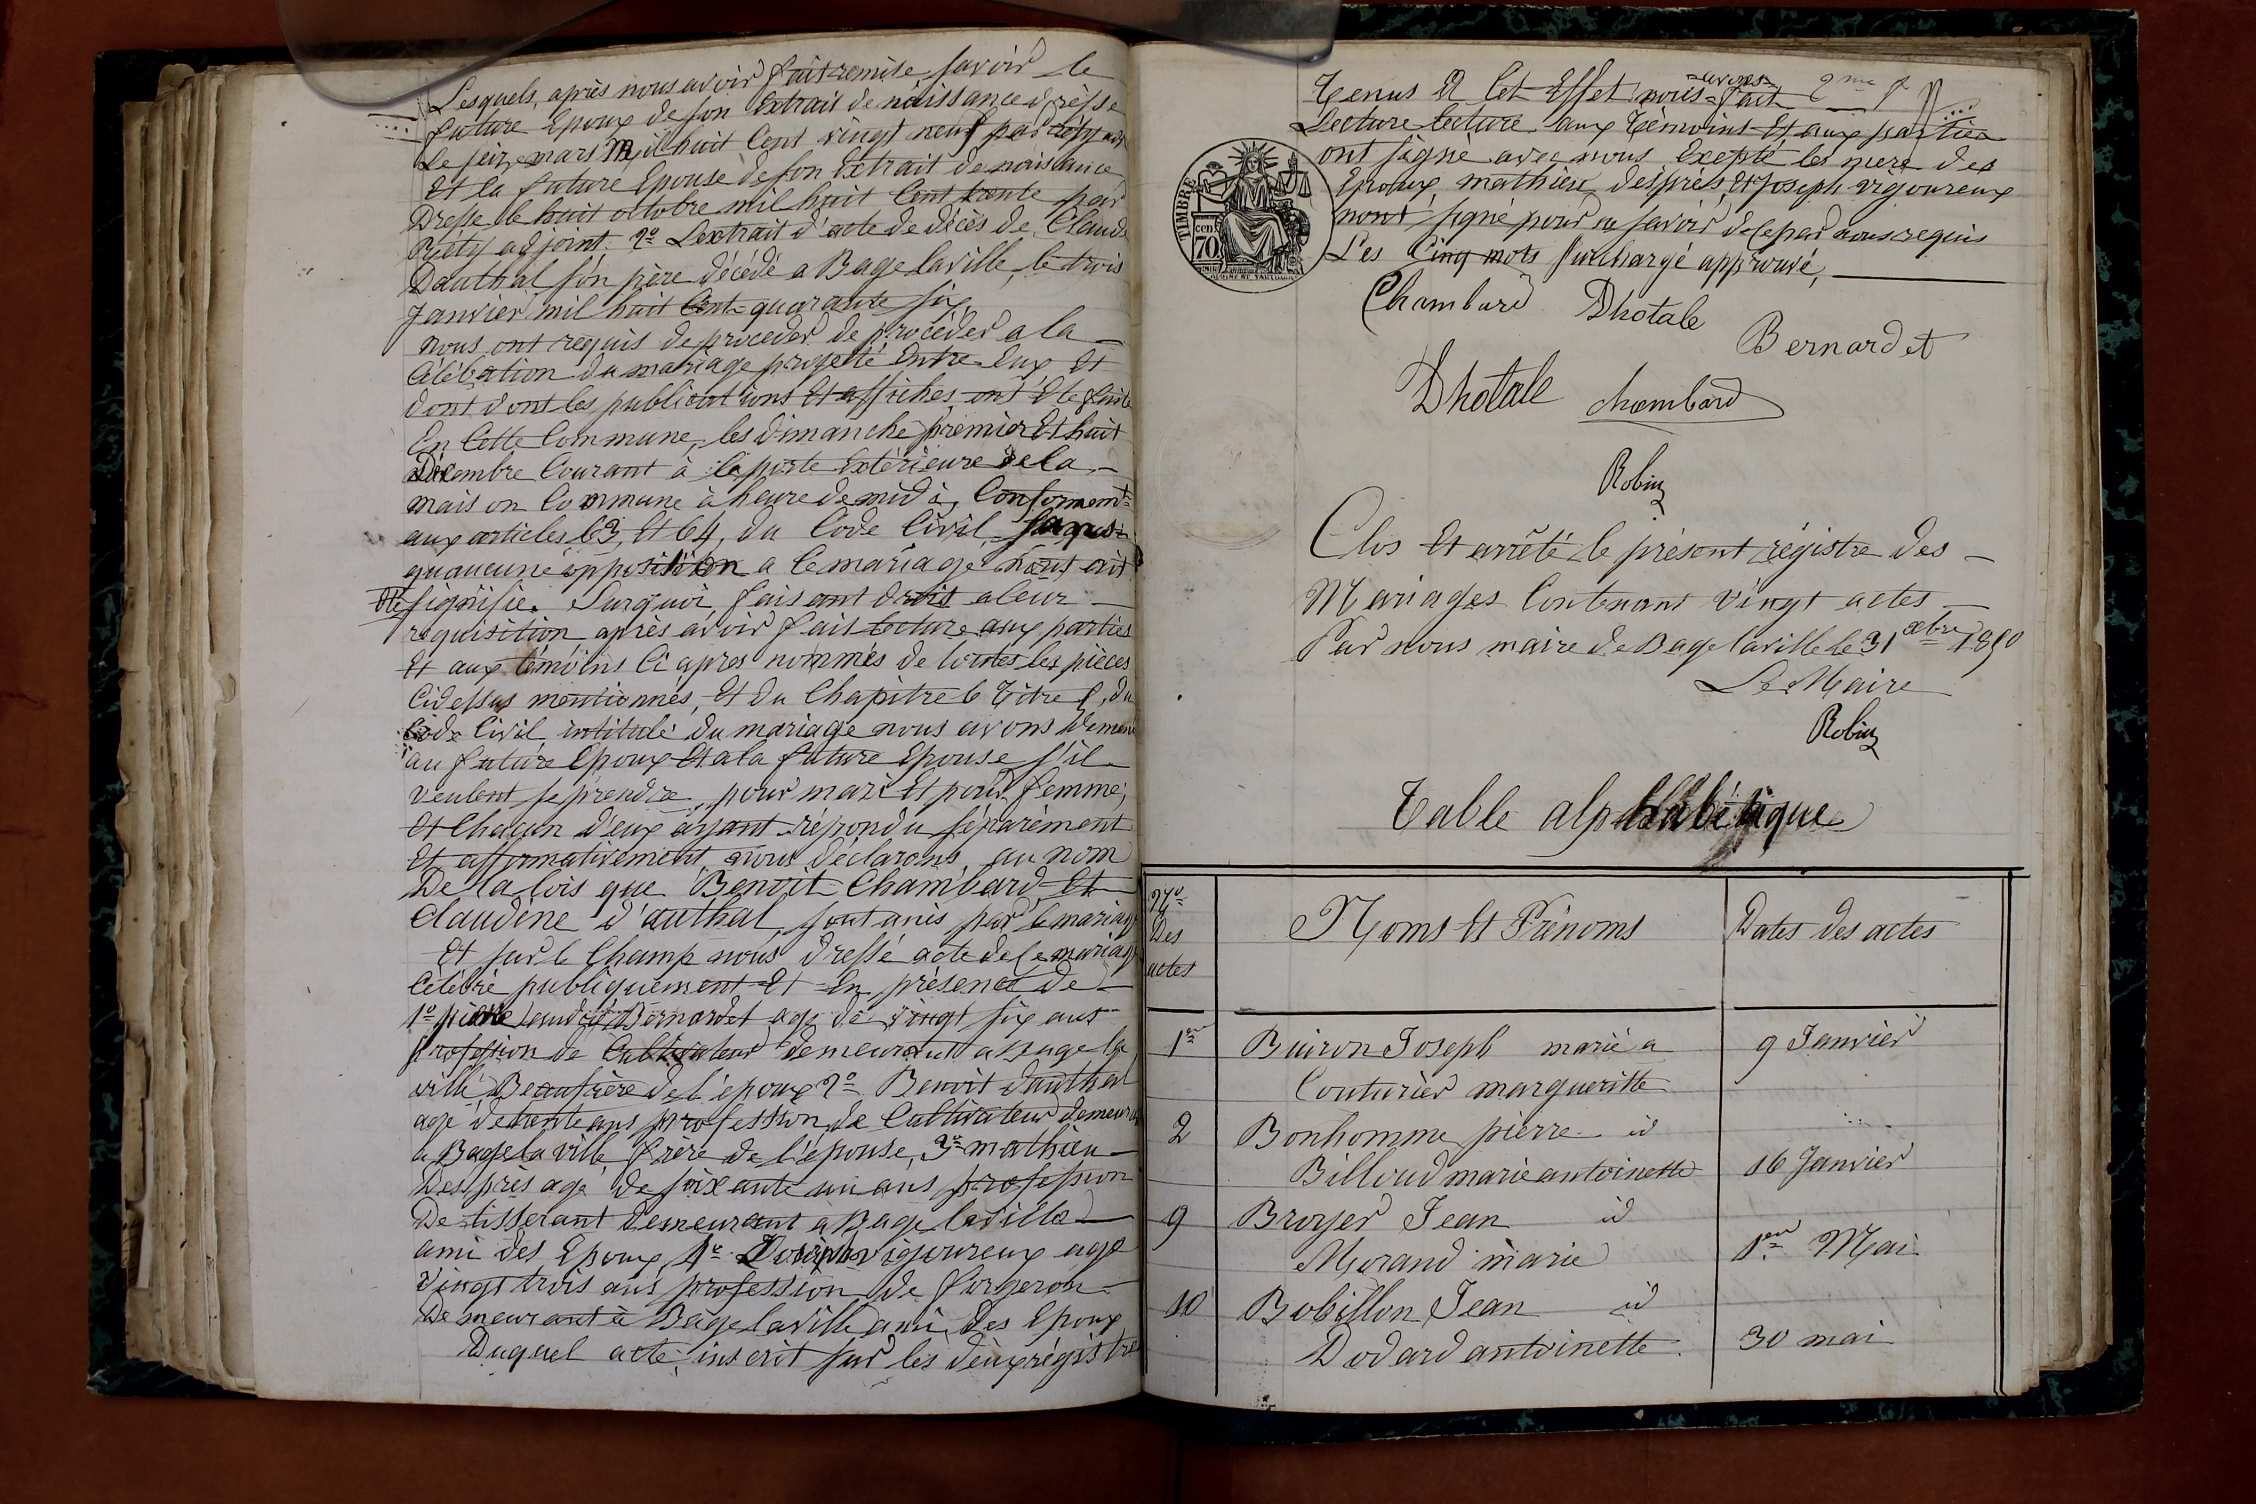 Lesquels, après nous avoir fait remise savoir le
future Epoux de son Extrait de naissance drésse
Le seize mars mil huit Cent vingt neuf par
Et la future Epouse de son Extrait de naissance
Dresse le huit octobre mil huit Cent trente par
adjoint. 2º L'extrait d'acte de décès de Claude
Dauthal son père décédé a Bage laville, le trois
Janvier mil huit Cent quarante six
nous ont requis de proceder de procéder a la
Célébration du mariage projetté Entre Eux, Et
dont dont les publications Et affiches ont Eté faite
En Cette Commune, les dimanche premier Et huit
Décembre Courant à la porte Extérieure de la
maison Commune à heure de midi, Conforment
aux articles 63, Et 64, du Code Civil, sans
qu'aucune opposition a Ce mariage nous ait
Eté signifie. Surquoi, faisant droit a leur
requisition après avoir fait lecture aux parties
Et aux témoins Ci apres nommés de toutes les pièces
Cidessus mentionnés, Et du Chapitre 6 Titre , du
Code Civil intitulé du mariage nous avons deman
au future Epoux Et a la future Epouse s'il
veulent se prendre pour mari Et pour femme;
Et Chacun d'eux ayant répondu séparément
Et affirmativement, nous déclarons, au nom
De la lois que Benoit Chambard Et
Claudine d'authal, sont unis par le mariage
Et sur le Champ nous dressé acte de Ce mariage
Célébré publiquement Et En présence de
1º Bernardet age de vingt six ans
profession de Cultivateur demeurant a Bage la
ville Beaufrère de l'époux 2º Benoit Dauthal
age de trente ans profession de Cultivateur demeurant
a Bage la ville frère de l'épouse, 3º mathieu
Desprès age de soixante un ans profession
De tisserant demeurant à Bage laville
ami des Epoux, 4º Joseph vigoureux age
vingt trois ans profession de forgeron
Demeurant à Bage laville ami des Epoux
Duquel acte inscrit sur les deux régistres
Tenus A Cet Effet nous avons fait 2me
Lecture lecture aux témoins Et aux parties
ont signé avec nous Exepté les mere des
Epoux mathieu desprès, Et Joseph vigoureux
nont signé pour ne savoir de Ce par nous requis
Les Cinq mots surchargé approuvé,
TIMBRE
70 cen
Chambard Dhotale
Bernardet
Dhotale chambard
Robin
Clos Et arrêté le présent régistre des
Mariages Contenant vingt actes
Par nous maire de Bage laville le 31 xbre 1850
Le Maire
Robin
Table alphabétique
Nº Des actes
Noms Et Prénoms
Dates des actes
1er Buiron Joseph marié a 9 Janvier
Couturier margueritte
2 Bonhomme pierre id
Billoud marie antoinette 16 Janvier
9 Broyer Jean id
Morand marie 1er Mai
10 Bobillon Jean id
Dodard antoinette 30 mai